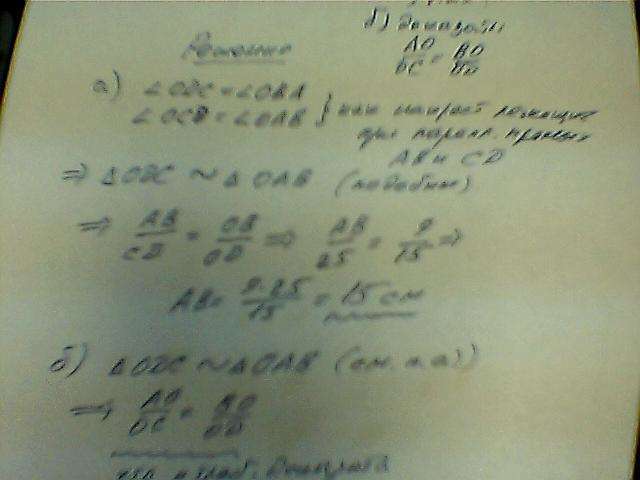 б) доказать
Решение
AO/OC = BO/OD
а) ∠ODC = ∠OBA
∠OCD = ∠OAB } как накрест лежащие
при паралл. прямых
AB и CD
⇒ △ODC ~ △OAB (подобны)
⇒ AB/CD = OB/OD ⇒ AB/25 = 9/15 ⇒
AB = 9·25/15 = 15 см
б) △ODC ~ △OAB (см. п. а))
⇒ AO/OC = BO/OD